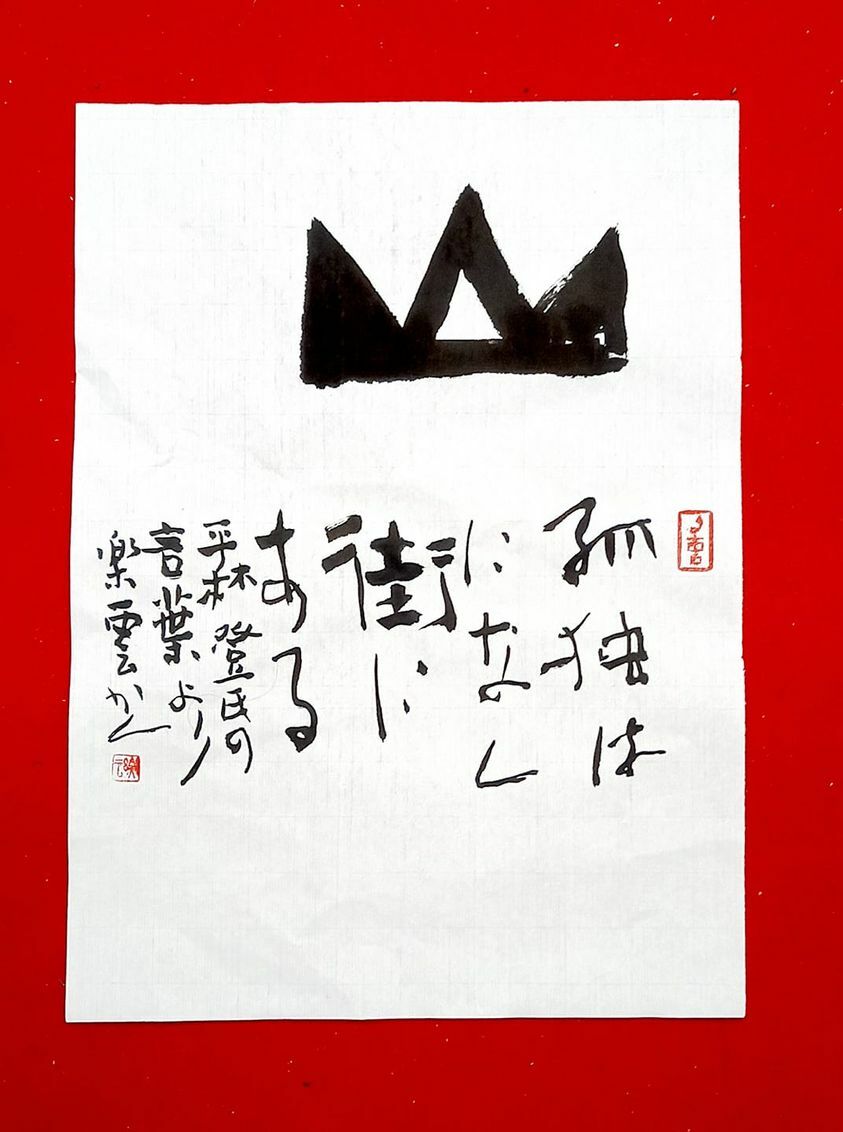 山
孤独は
になく
街に
ある
平林登氏の
言葉より
楽雲かく